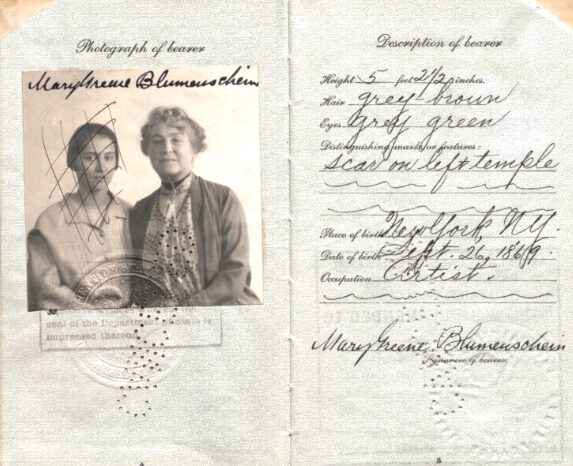 Photograph of bearer
Mary Greene Blumenschein
seal of the Department of State is
impressed thereon
4
Description of bearer
Height 5 feet 2 1/2 inches.
Hair grey-brown
Eyes grey green
Distinguishing marks or features:
scar on left temple
Place of birth New York N.Y.
Date of birth Sept. 26, 1869.
Occupation Artist.
Mary Greene Blumenschein
Signature of bearer.
5